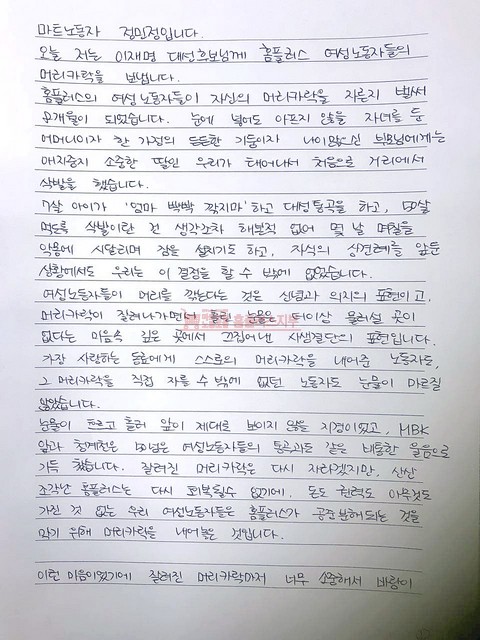 마트노동자 정민정입니다.
오늘 저는 이재명 대선후보님께 홈플러스 여성노동자들의
머리카락을 보냅니다.
홈플러스의 여성노동자들이 자신의 머리카락을 자른지 벌써
개월이 되었습니다. 눈에 넣어도 아프지 않을 자녀를 둔
어머니이자 한 가정의 든든한 기둥이자 나이많으신 부모님에게는
애지중지 소중한 딸인 우리가 태어나서 처음으로 거리에서
삭발을 했습니다.
7살 아이가 '엄마 빡빡 깎지마' 하고 대성통곡을 하고, 50살
먹도록 삭발이란 건 생각조차 해보적 없어 몇 날 며칠을
악몽에 시달리며 잠을 설치기도 하고, 자식의 상견례를 앞둔
상황에서도 우리는 이 결정을 할 수 밖에 없었습니다.
여성노동자들이 머리를 깎는다는 것은 신념과 의지의 표현이고,
머리카락이 잘려나가면서 흘린 눈물은 더이상 물러설 곳이
없다는 마음속 깊은 곳에서 끄집어낸 사생결단의 표현입니다.
가장 사랑하는 동료에게 스스로의 머리카락을 내어준 노동자도,
그 머리카락을 직접 자를 수 밖에 없던 노동자도 눈물이 마르질
않았습니다.
눈물이 흐르고 흘러 앞이 제대로 보이지 않을 지경이었고, MBK
앞과 청계천은 님은 여성노동자들의 통곡과도 같은 비통한 울음으로
가득 찼습니다. 잘려진 머리카락은 다시 자라겠지만, 산산
조각난 홈플러스는 다시 회복될수 없기에, 돈도 권력도 아무것도
가진 것 없는 우리 여성노동자들은 홈플러스가 공중분해되는 것을
막기 위해 머리카락을 내어놓은 것입니다.
이런 마음이었기에 잘려진 머리카락마저 너무 소중해서 바람이